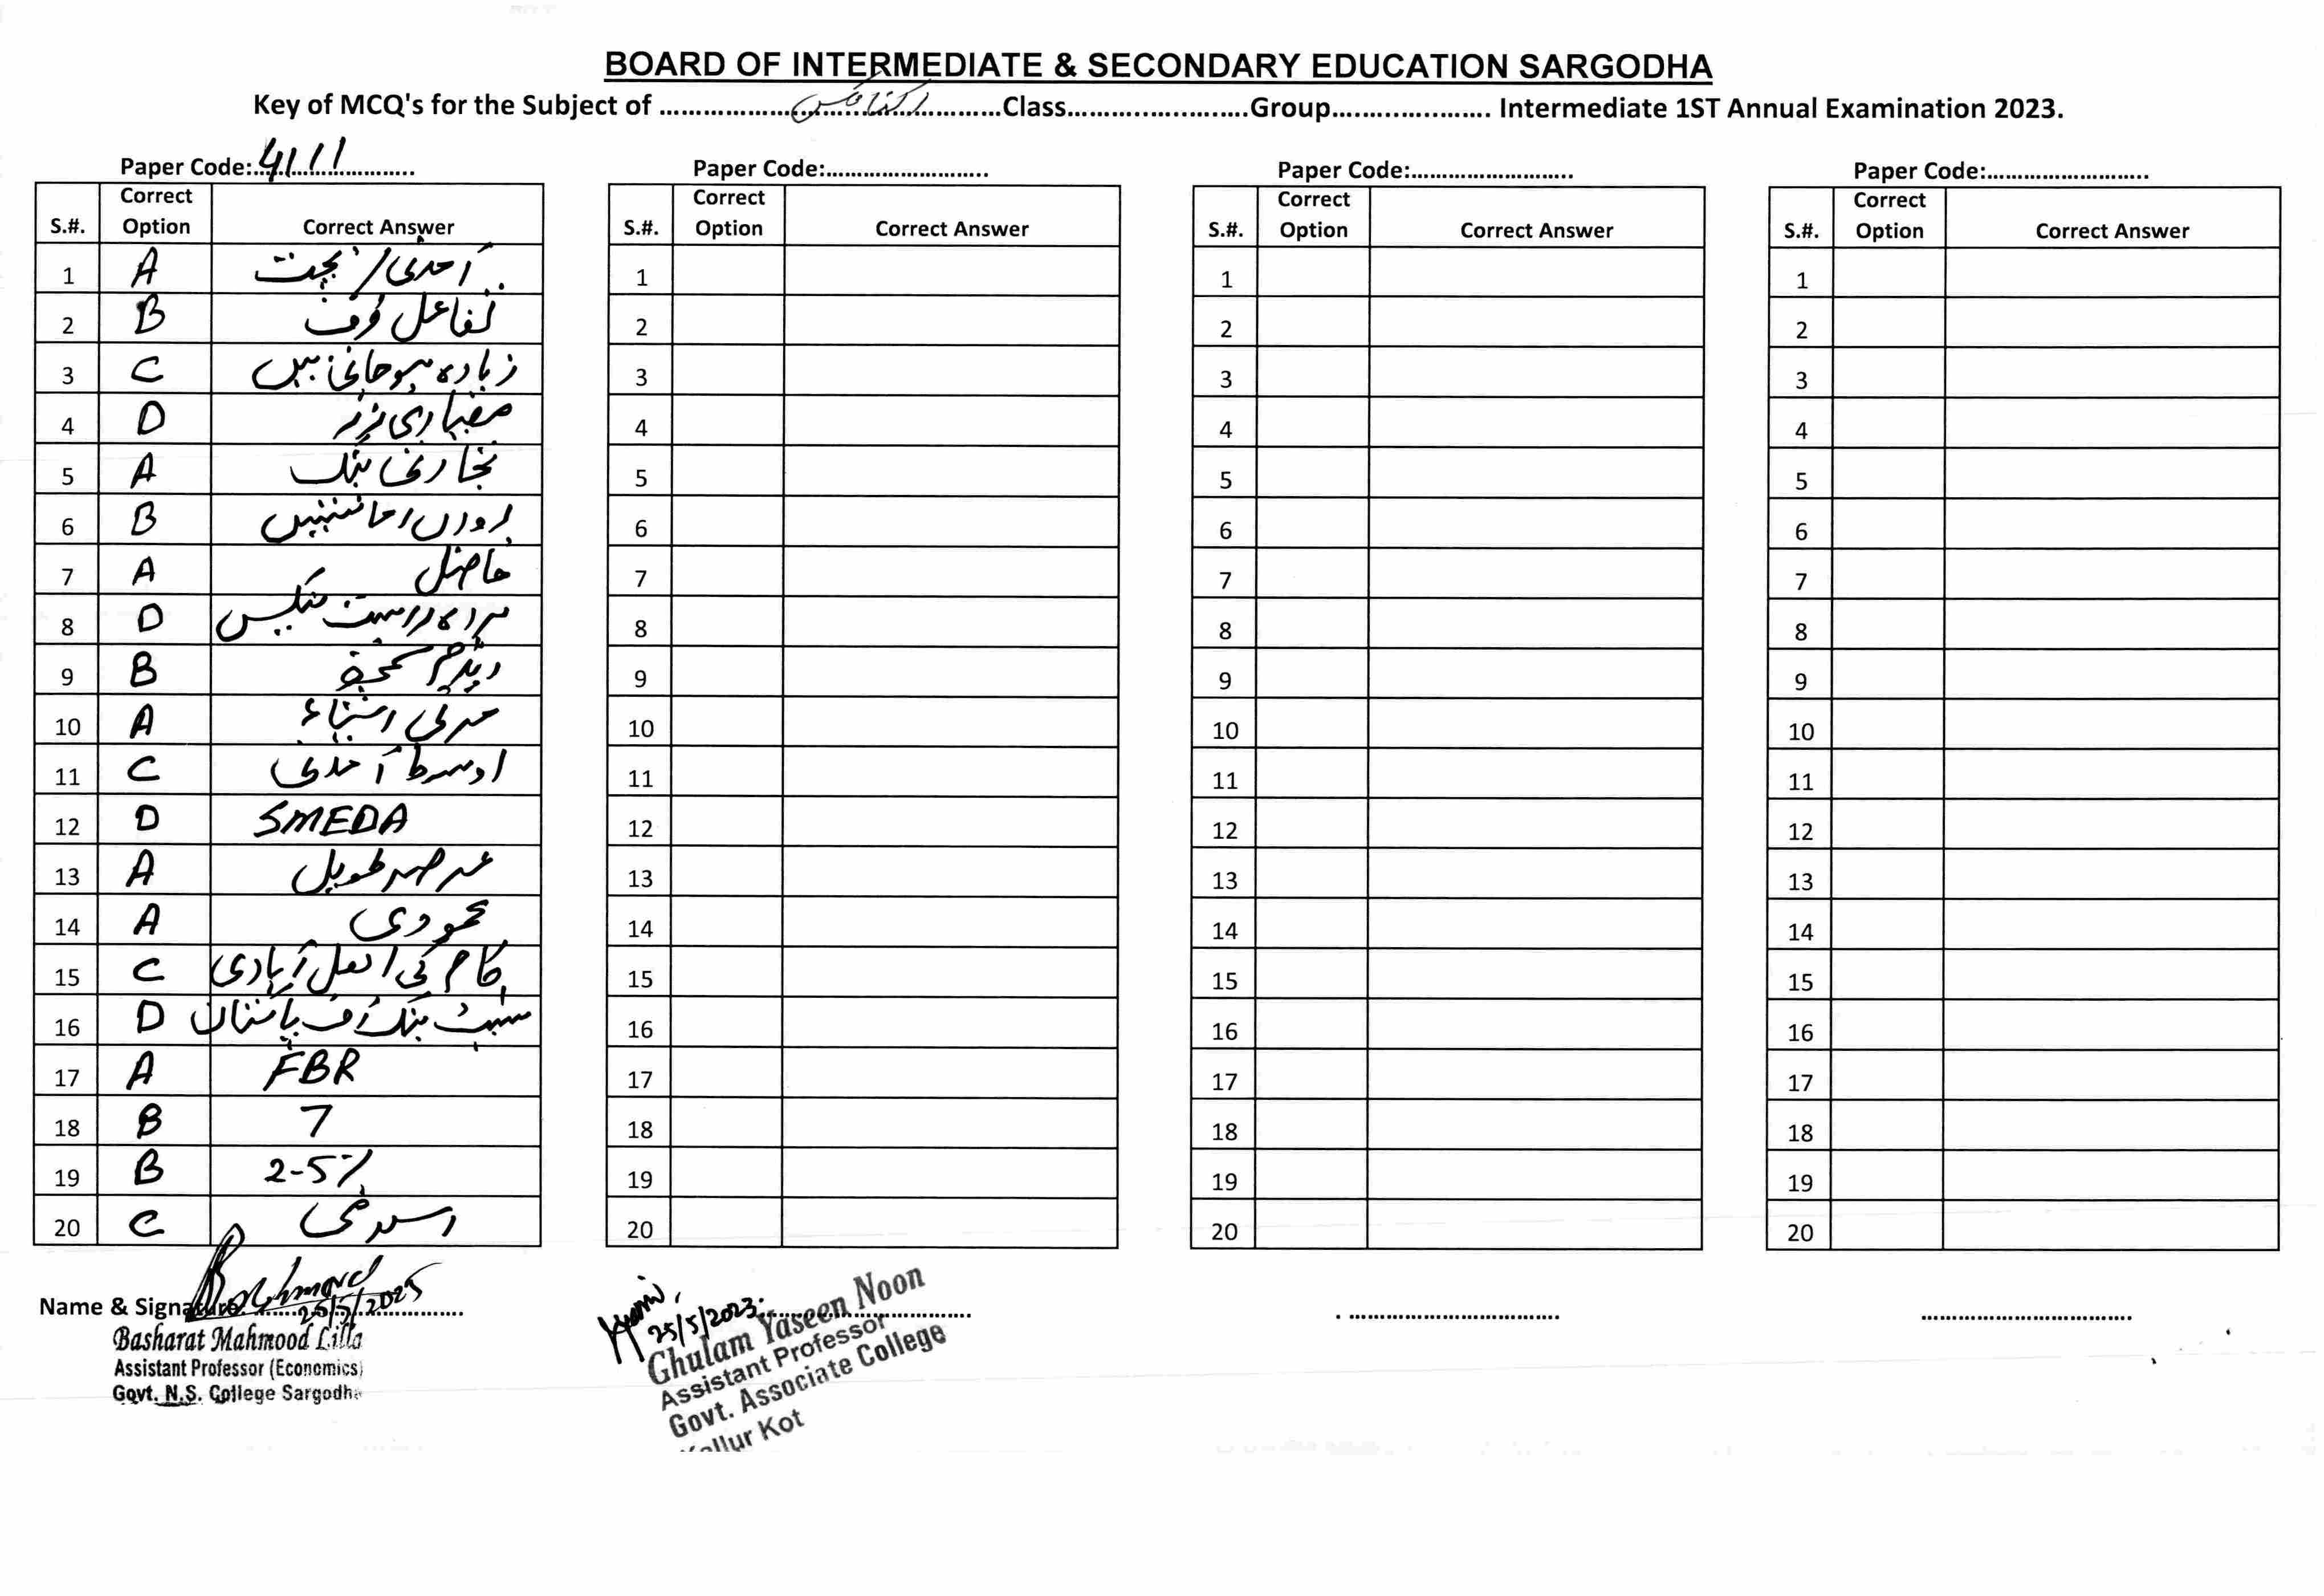 BOARD OF INTERMEDIATE & SECONDARY EDUCATION SARGODHA
Key of MCQ's for the Subject of اکنامکس Class Group Intermediate 1ST Annual Examination 2023.
Paper Code: 4111
S.#. Correct Option Correct Answer
1 A آمدنی / بچت
2 B تفاعل
3 C زیادہ ہو جاتی ہیں
4 D معیاری زر
5 A تجارتی بنک
6 B
7 A
8 D براہ راست ٹیکس
9 B
10 A مرئی اشیاء
11 C اوسط آمدنی
12 D SMEDA
13 A عرصہ طویل
14 A عمودی
15 C کام کی اہل آبادی
16 D سٹیٹ بنک آف پاکستان
17 A FBR
18 B 7
19 B 2-5%
20 C
Paper Code:
S.#. Correct Option Correct Answer
1
2
3
4
5
6
7
8
9
10
11
12
13
14
15
16
17
18
19
20
Paper Code:
S.#. Correct Option Correct Answer
1
2
3
4
5
6
7
8
9
10
11
12
13
14
15
16
17
18
19
20
Paper Code:
S.#. Correct Option Correct Answer
1
2
3
4
5
6
7
8
9
10
11
12
13
14
15
16
17
18
19
20
Name & Signature
Basharat Mahmood Lilla
Assistant Professor (Economics)
Govt. N.S. College Sargodha
25/5/2023.
Ghulam Yaseen Noon
Assistant Professor
Govt. Associate College
Kallur Kot